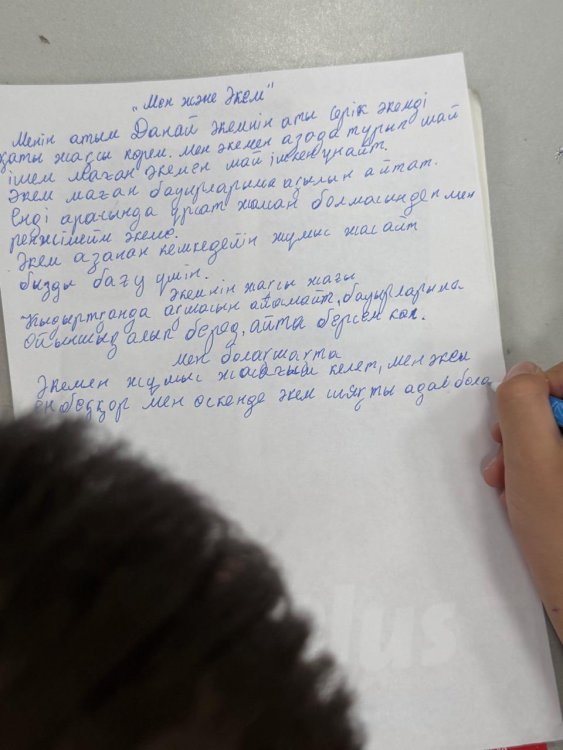 „Мен және Әкем"
Менін атым Данай әкемнін аты Серік әкемді
қаты жақсы көрем. мен әкемен азода турып май
ішем маған әкемен май ішкен унайт.
Әкем маған бауырларыма ақылын айтат.
Енді арасында ұрсат жаман болмасын деп мен
ренжімейм әкеме.
Әкем азанан кешкедейін жұмыс жасайт
бызды бағу үшін.
Әкемнін жақсы жағы
Қыдыртқанда ақшасын аямайт, бауырларыма
Ойыншық алып беред, айта берсем көп.
Мен болашақта
Әкемен жұмыс жасағым келет, мен әкем
еңбекқор мен өскенде әкем сияқты адам бола
plus